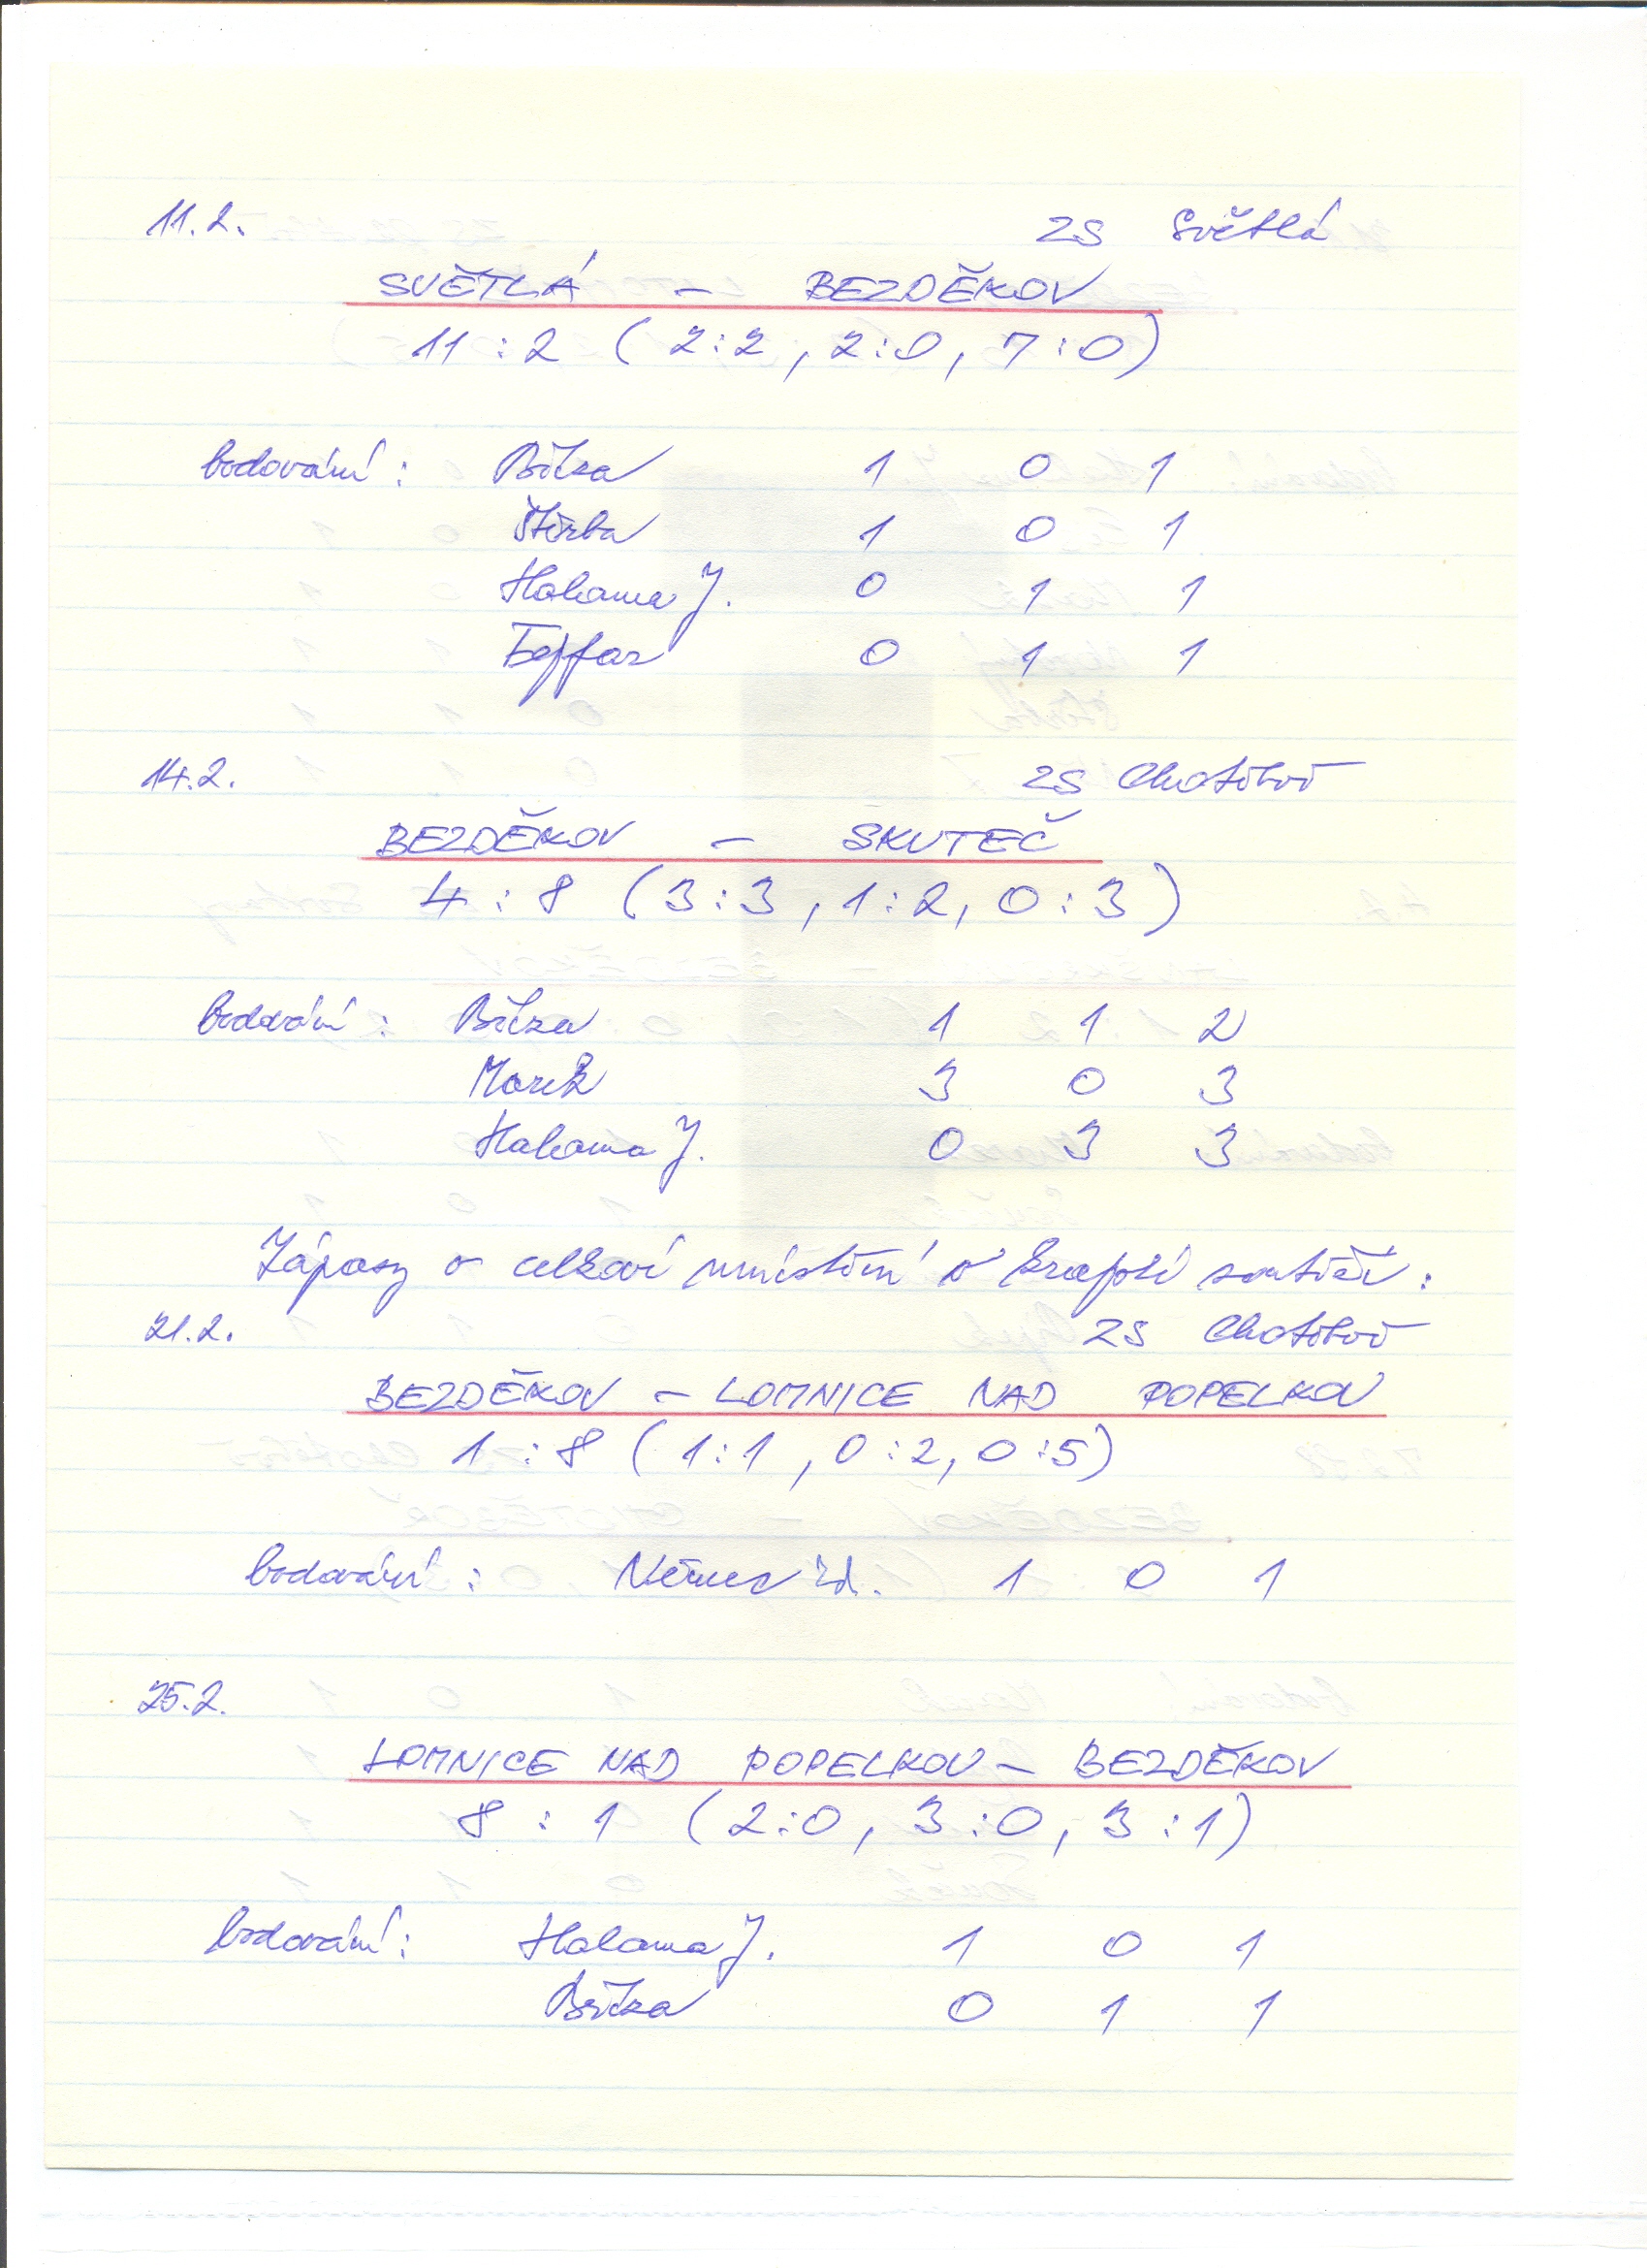 11.2. ZS Světlá
SVĚTLÁ - BEZDĚKOV
11 : 2 ( 2:2 , 2:0 , 7:0 )
bodování : Bříza 1 0 1
Štěrba 1 0 1
Halama J. 0 1 1
Fejfar 0 1 1
14.2. ZS Chotěboř
BEZDĚKOV - SKUTEČ
4 : 8 ( 3:3 , 1:2 , 0:3 )
bodování : Bříza 1 1 2
Marek 3 0 3
Halama J. 0 3 3
Zápasy o celkové umístění v krajské soutěži :
21.2. ZS Chotěboř
BEZDĚKOV - LOMNICE NAD POPELKOU
1 : 8 ( 1:1 , 0:2 , 0:5 )
bodování : Němec Zd. 1 0 1
25.2.
LOMNICE NAD POPELKOU - BEZDĚKOV
8 : 1 ( 2:0 , 3:0 , 3:1 )
bodování : Halama J. 1 0 1
Bříza 0 1 1